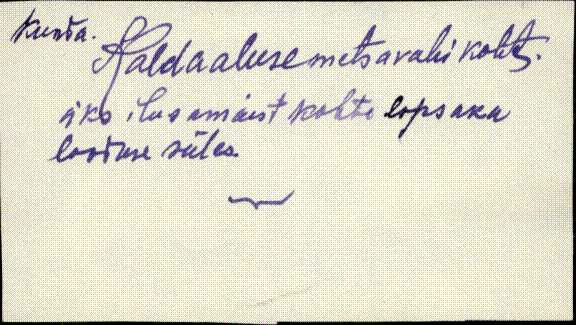 Kunda.
Kaldaaluse metsavahi koht.
üks ilusamaist kohte lopsaka
looduse süles.